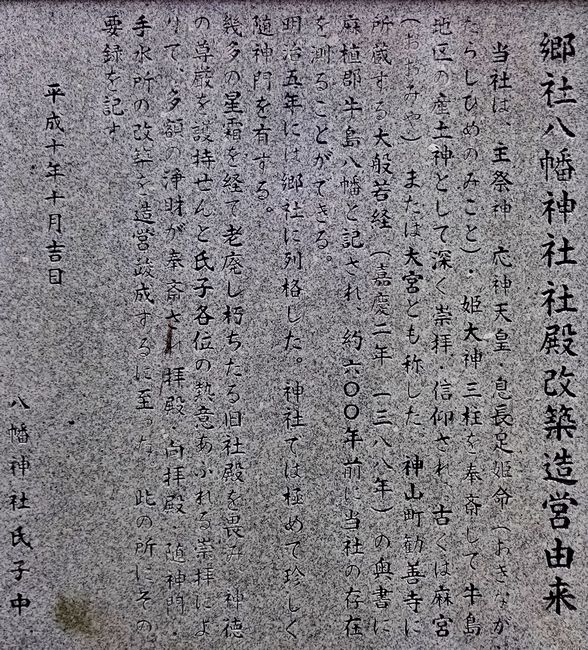 郷社八幡神社社殿改築造営由来
当社は、主祭神 応神天皇・息長足姫命（おきなが
たらしひめのみこと）・姫大神三柱を奉斎して牛島
地区の産土神として深く崇拝・信仰され、古くは麻宮
（おおみや）または大宮とも称した。神山町勧善寺に
所蔵する大般若経（嘉慶二年 一三八八年）の奥書に
麻植郡牛島八幡と記され、約六〇〇年前に当社の存在
を測ることができる。
明治五年には郷社に列格した。神社では極めて珍しく
随神門を有する。
幾多の星霜を経て老廃し朽ちたる旧社殿を畏み、神徳
の尊厳を護持せんと氏子各位の熱意あふれる崇拝によ
りて、多額の浄財が奉斎さ 拝殿 向拝殿 随神門・
手水所の改築を造営竣成するに至った 此の所にその
要録を記す
平成十年十月吉日
八幡神社氏子中